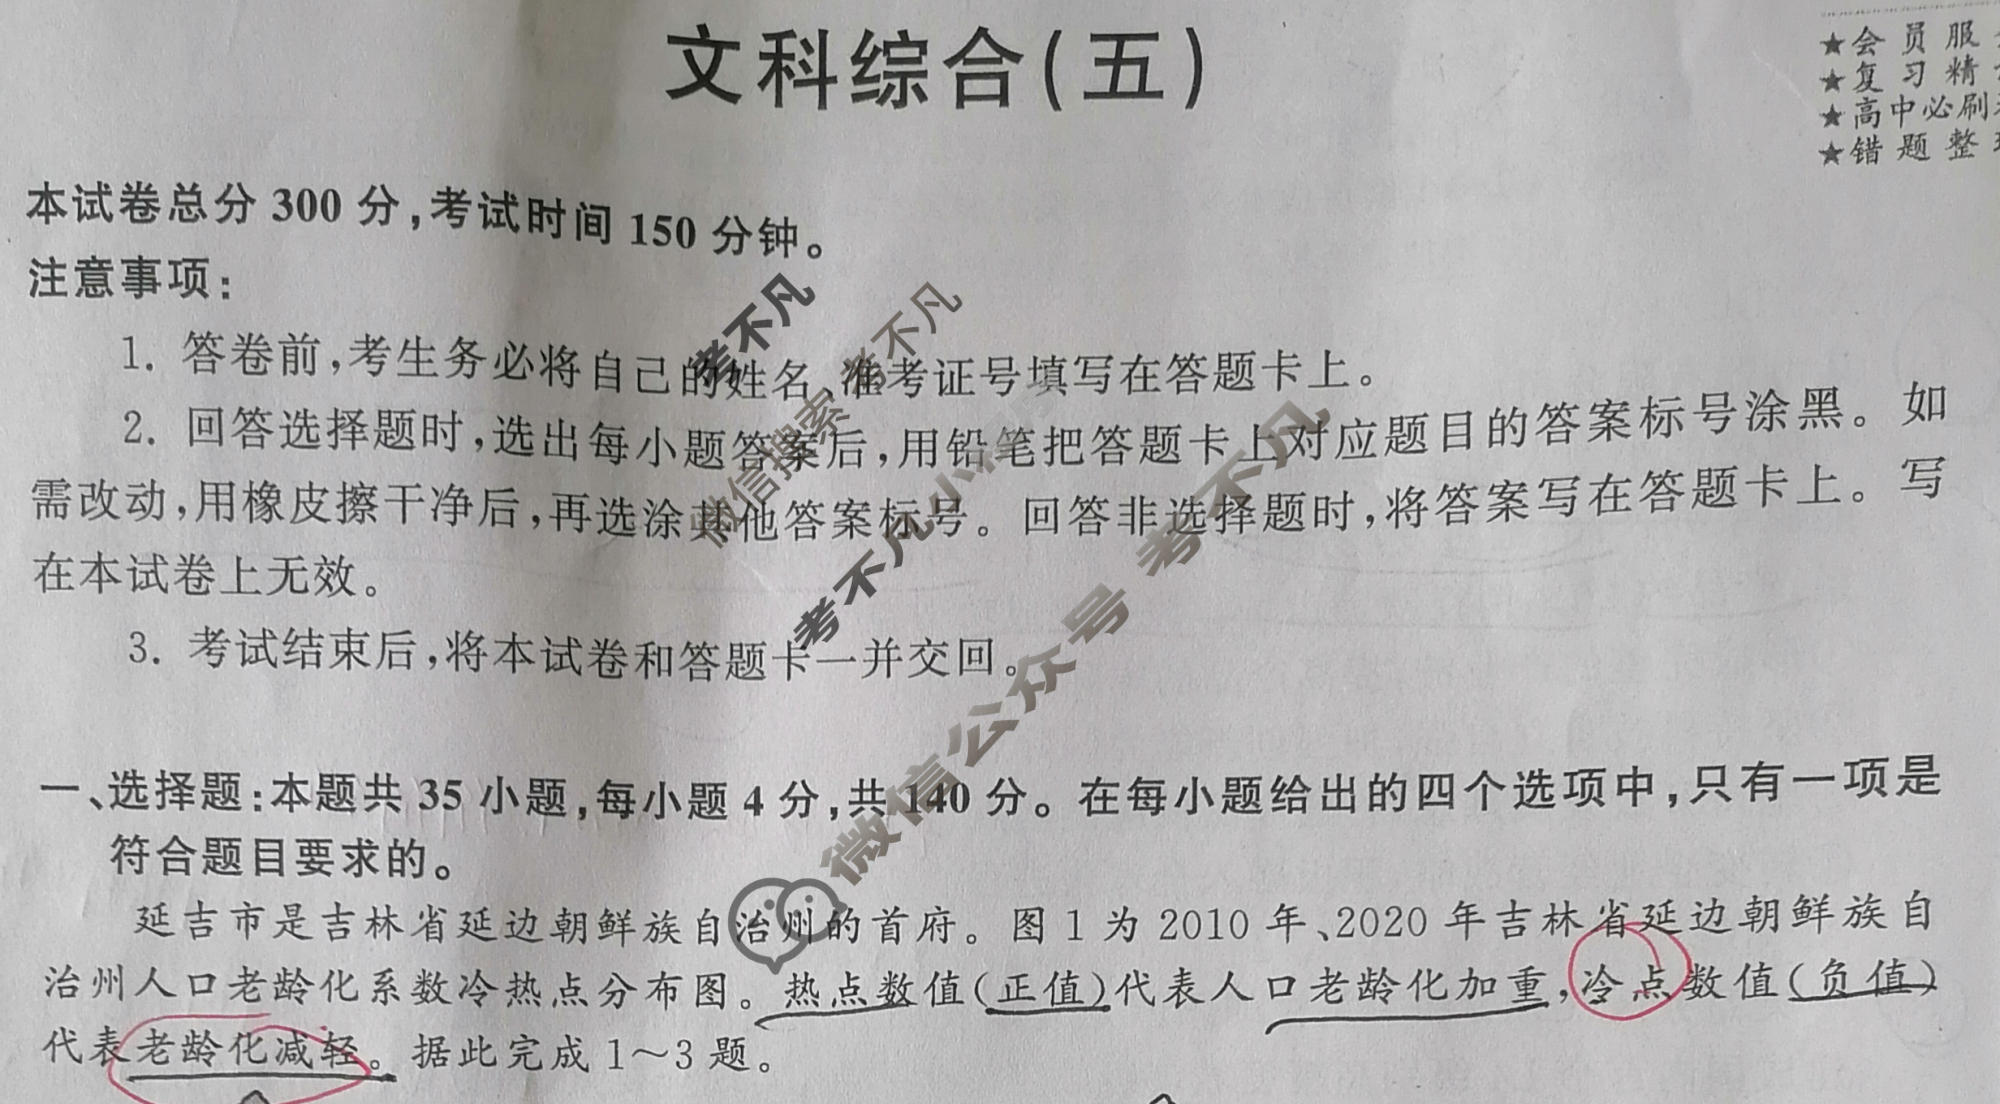 文科综合(五)
★会员服
★复习精
★高中必刷
★错题整
本试卷总分300分,考试时间150分钟。
注意事项:
1. 答卷前,考生务必将自己的姓名、准考证号填写在答题卡上。
2. 回答选择题时,选出每小题答案后,用铅笔把答题卡上对应题目的答案标号涂黑。如
需改动,用橡皮擦干净后,再选涂其他答案标号。回答非选择题时,将答案写在答题卡上。写
在本试卷上无效。
3. 考试结束后,将本试卷和答题卡一并交回。
一、选择题:本题共35小题,每小题4分,共140分。在每小题给出的四个选项中,只有一项是
符合题目要求的。
延吉市是吉林省延边朝鲜族自治州的首府。图1为2010年、2020年吉林省延边朝鲜族自
治州人口老龄化系数冷热点分布图。热点数值(正值)代表人口老龄化加重,冷点数值(负值)
代表老龄化减轻。据此完成1~3题。
考不凡
微信搜索 考不凡
考不凡小
微信公众号 考不凡